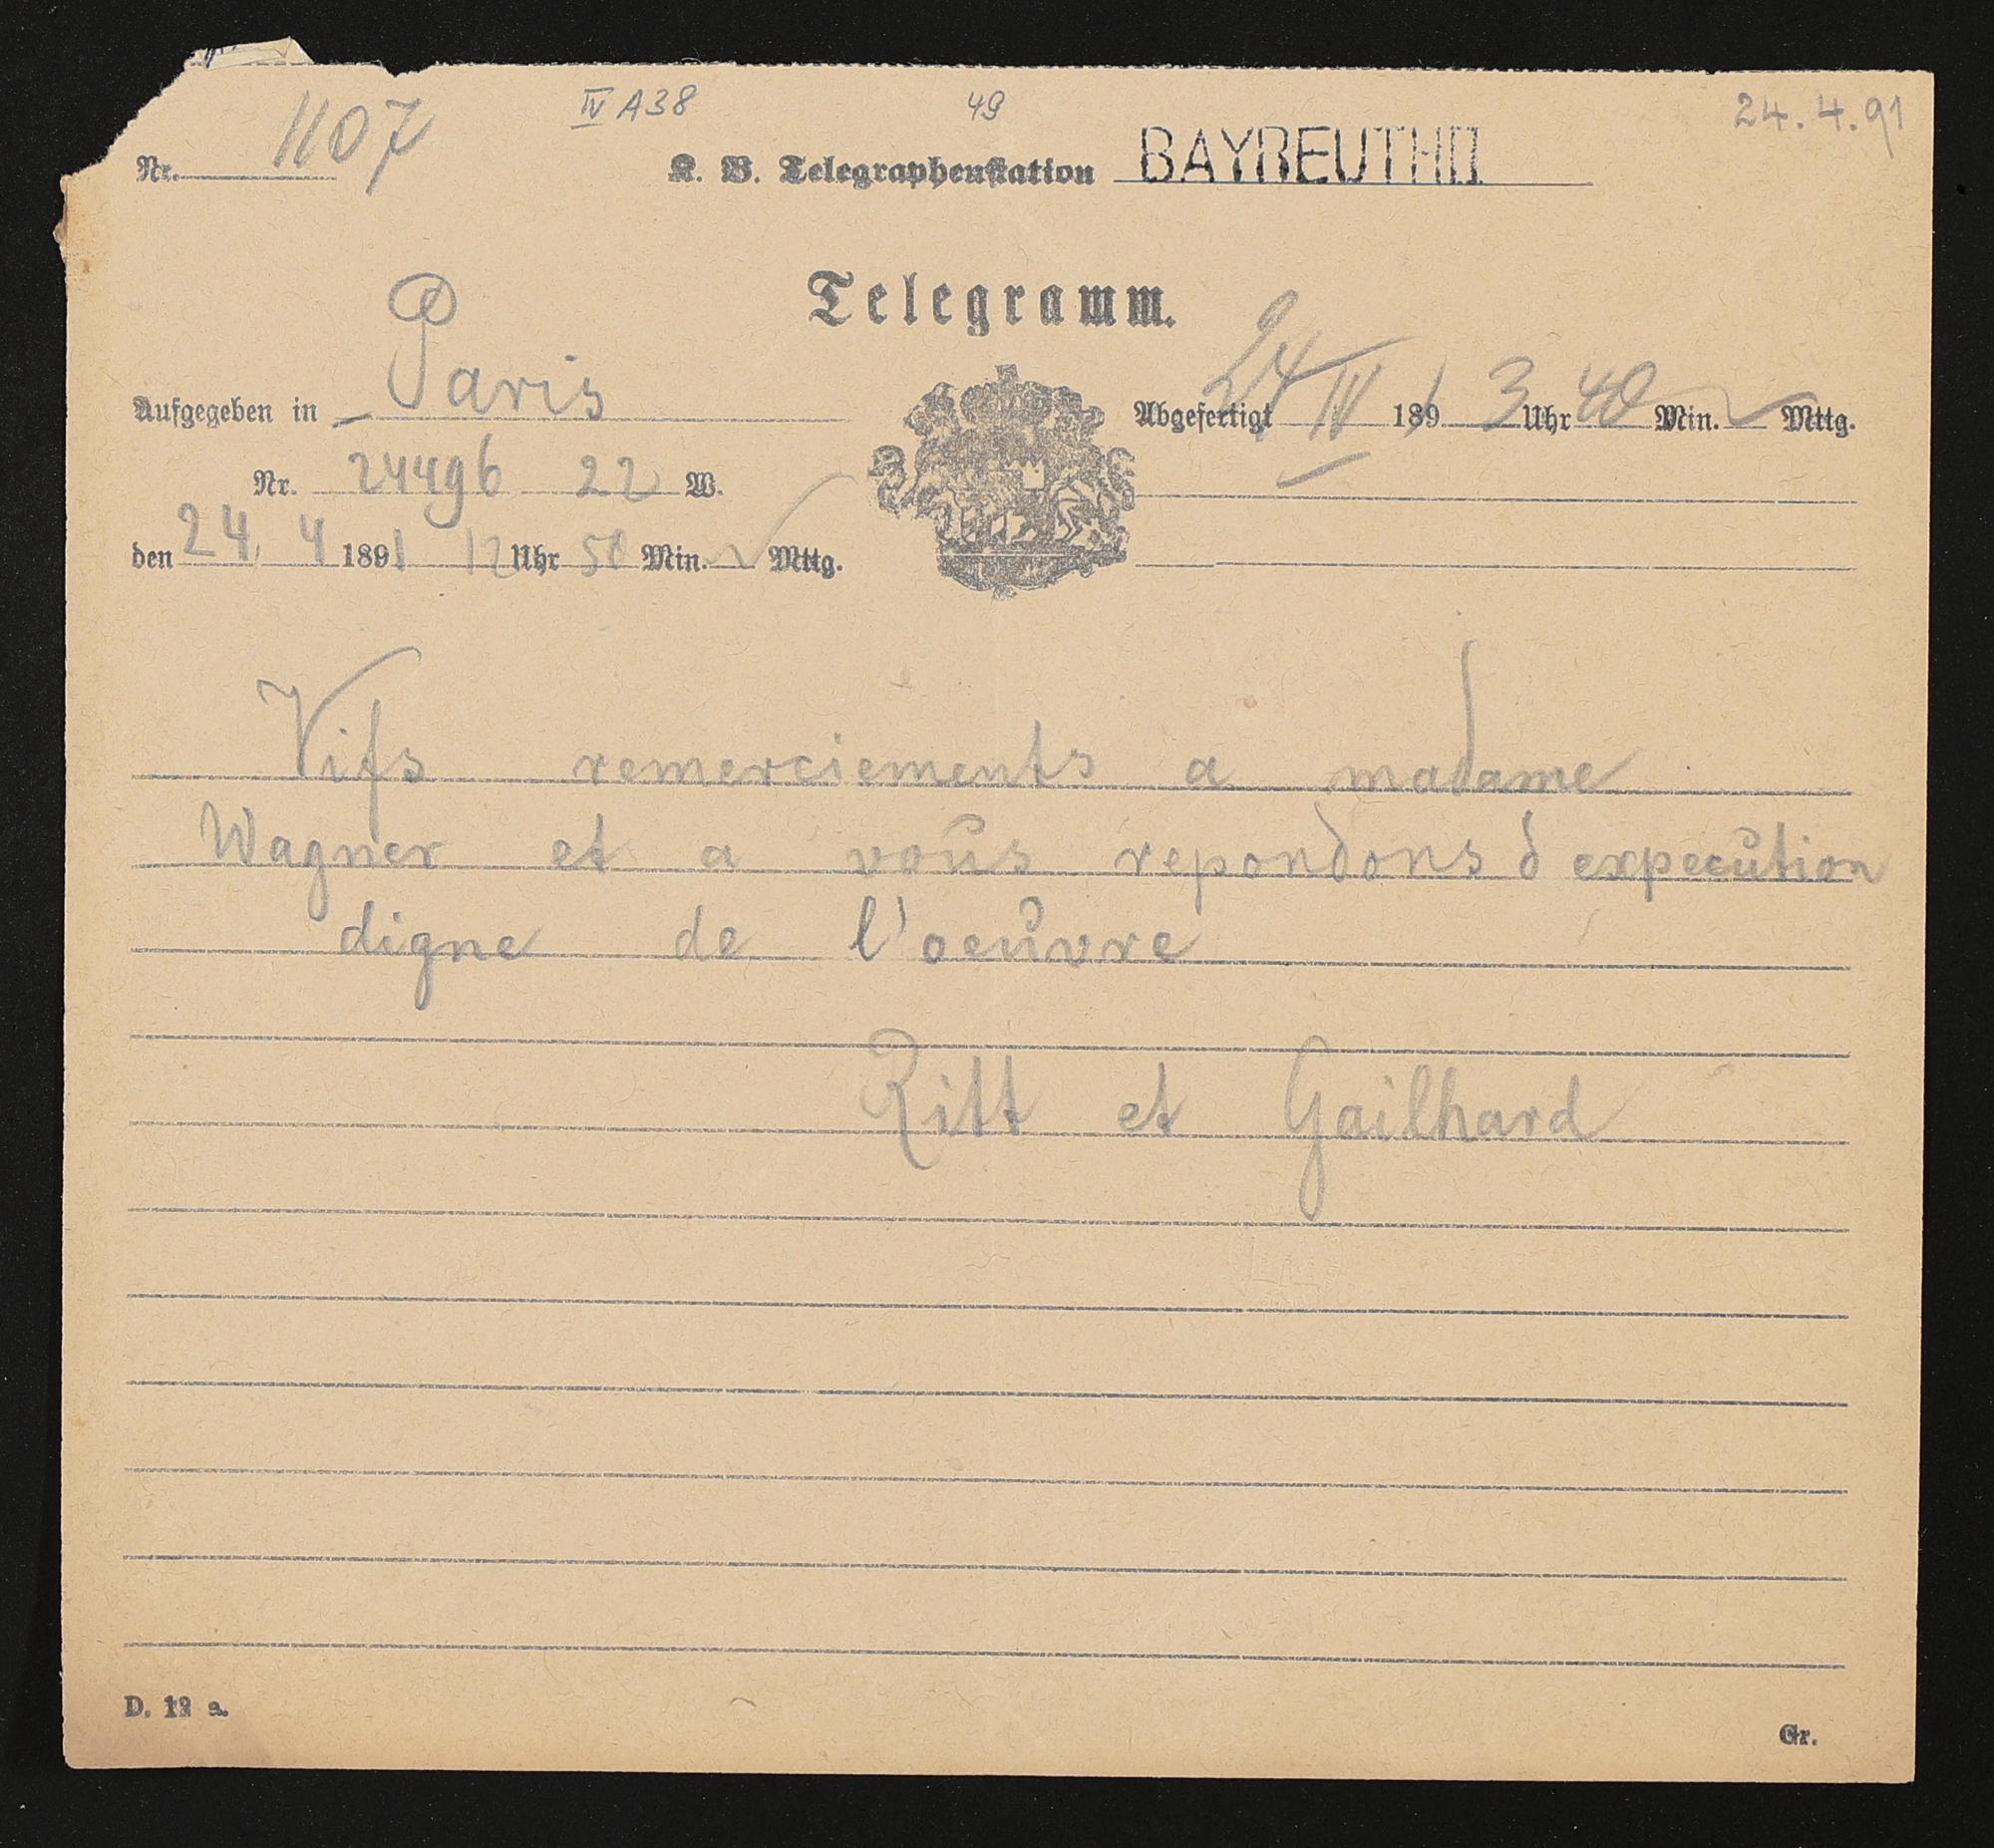 IV A38 49 24.4.91
Nr. 1107 K. B. Telegraphenstation BAYREUTH II
Telegramm.
Aufgegeben in Paris Abgefertigt 24 IV 1891 3 Uhr 40 Min. Mttg.
Nr. 24496 22 W.
den 24. 4 1891 12 Uhr 50 Min. Mttg.
Vifs remerciements a madame
Wagner et a vous repondons d expecution
digne de l'oeuvre
Ritt et Gailhard
D. 12 a.
Gr.